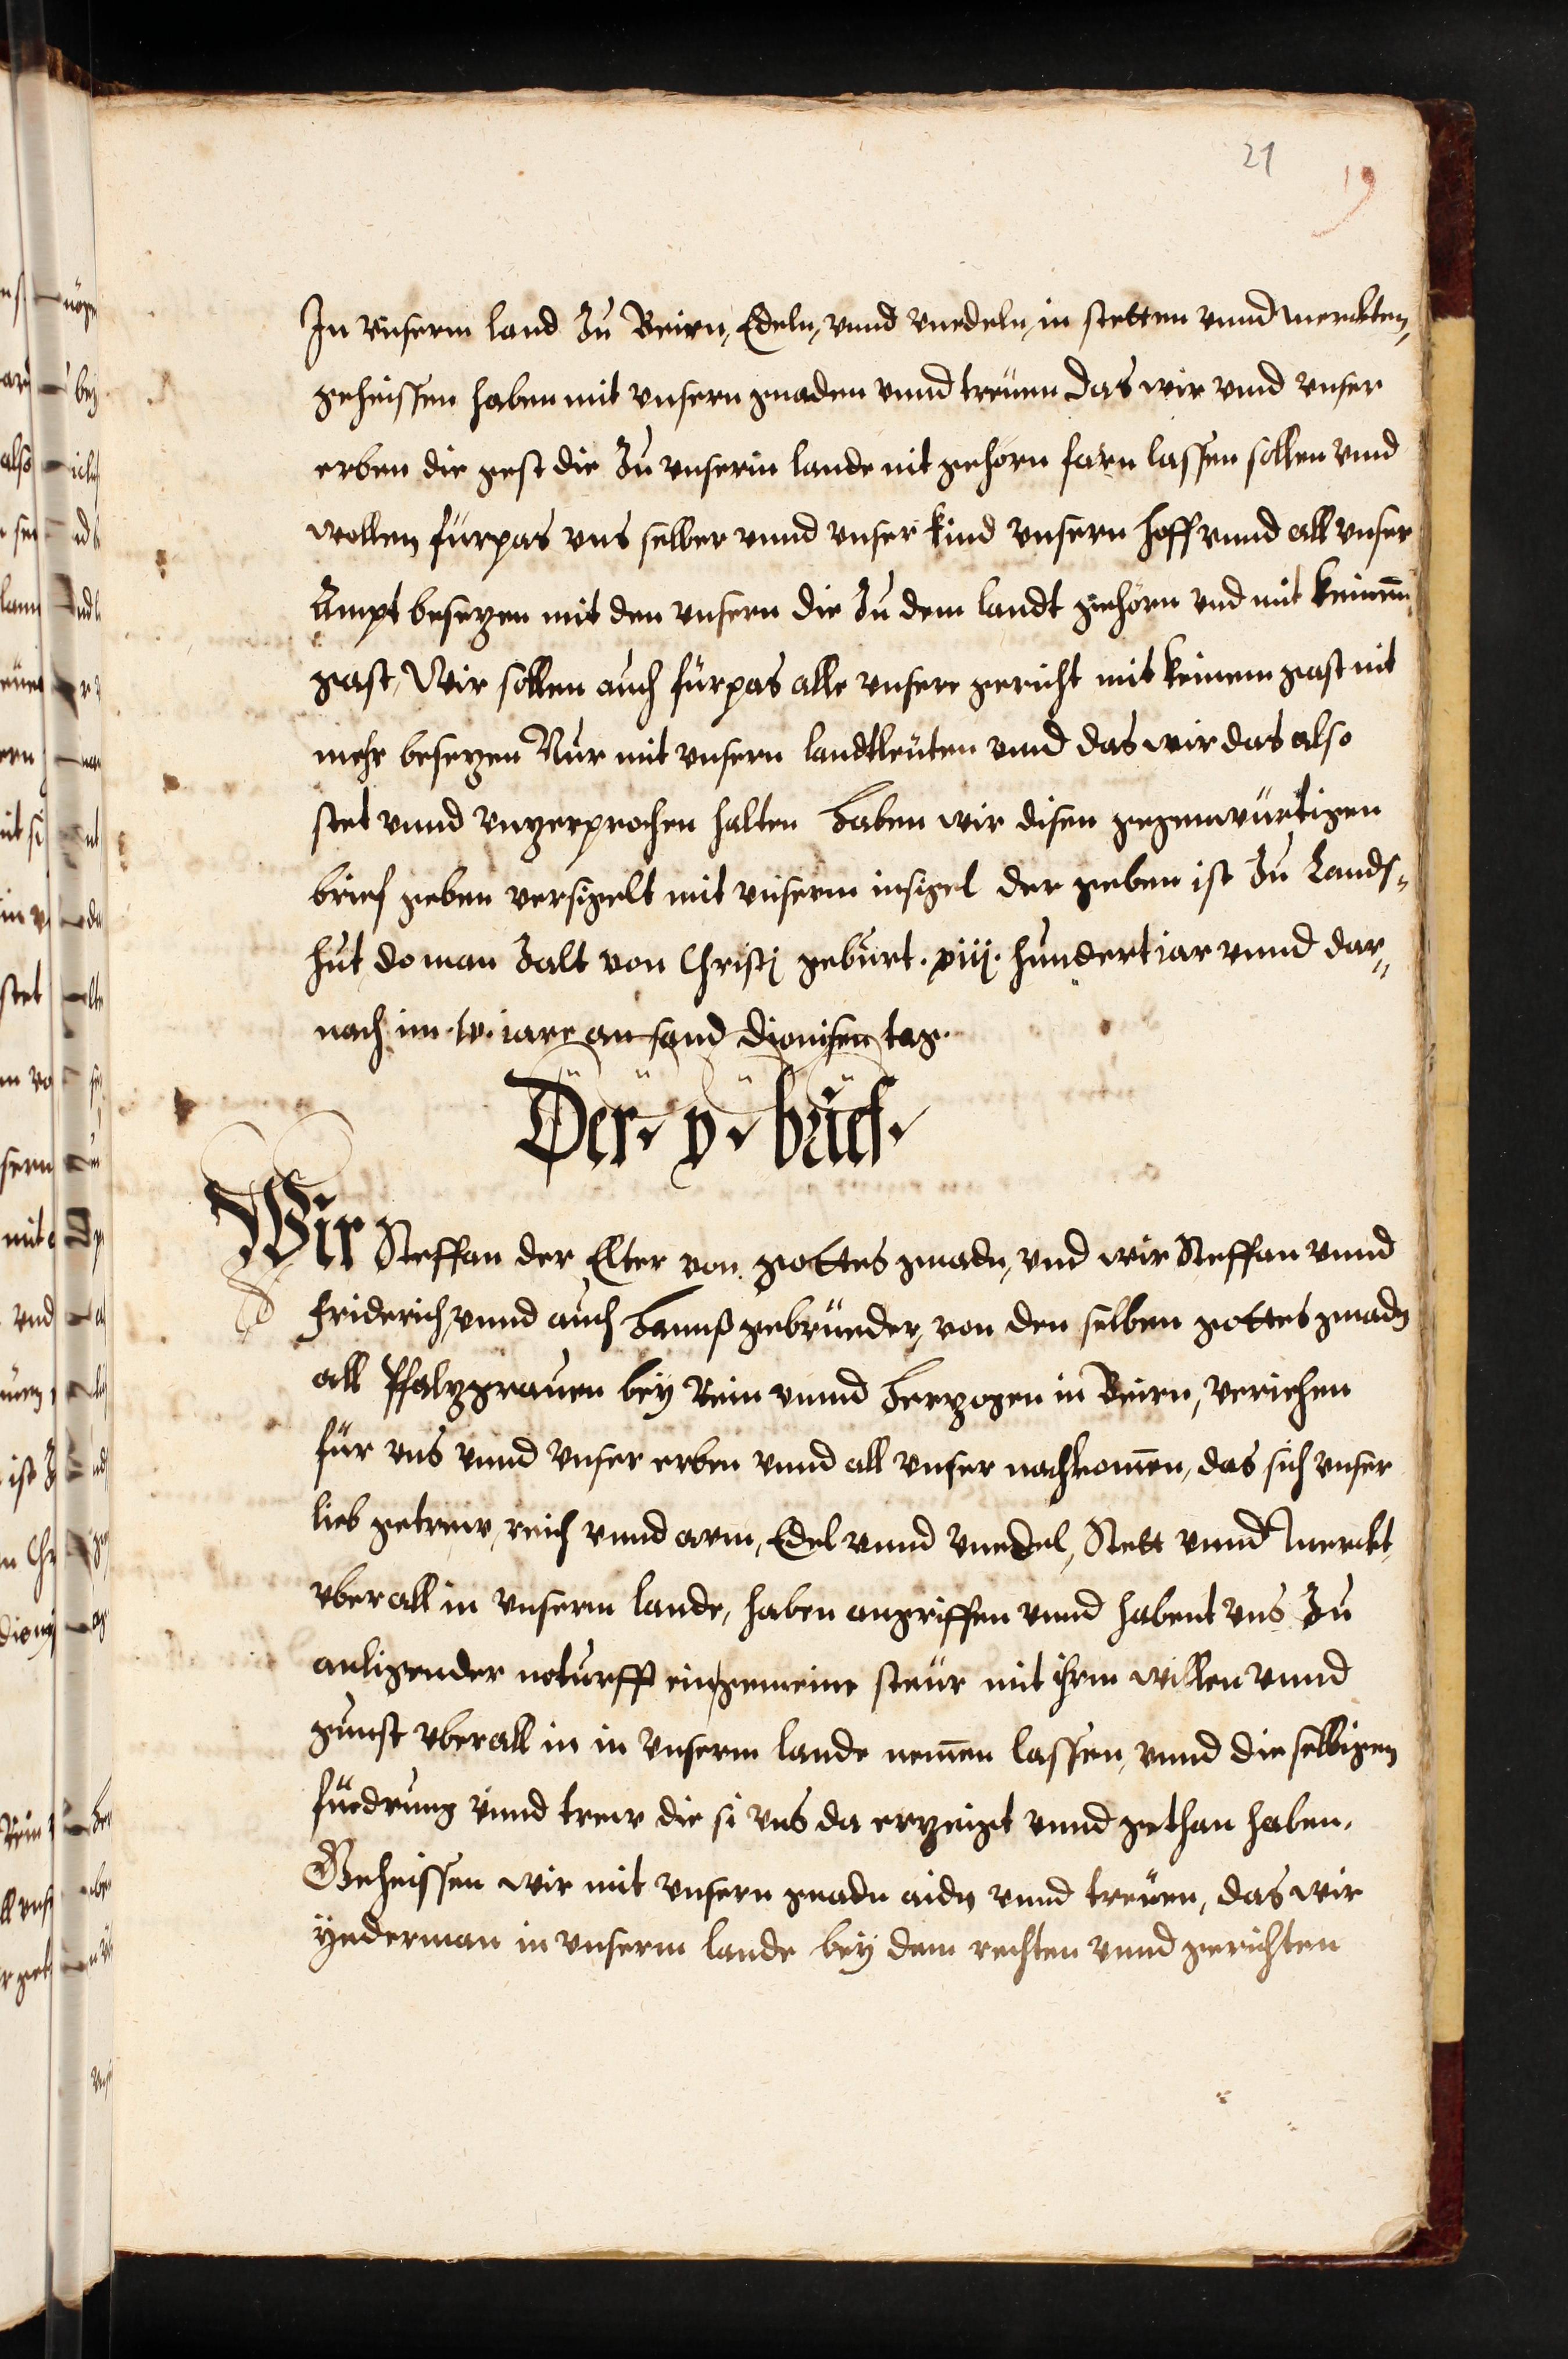 21
19
In vnserm land Zu Beirn, Edeln, vnnd vnedeln, in stetten vnnd merckten,
geheissen haben mit vnsern gnaden vnnd treuen das wir vnnd vnser
erben die gest die Zu vnserm lande nit gehörn farn lassen sollen vnnd
wollen fürpas vns selber vnnd vnser kind vnsern hoff vnnd all vnser
Ämpt besezen mit den vnsern die Zu dem landt gehörn vnd mit keinem
gast, Wir sollen auch fürpas alle vnsere gericht mit keinem gast nit
mehr besezen Nur mit vnsern landtleuten vnnd das wir das also
stet vnnd vnzerprochen halten Haben wir disen gegenwürtigen
brief geben versigelt mit vnserm insigel der geben ist Zu Lands¬
hut, do man Zalt von Christj geburt. xiij. hundert iar vnnd dar¬
nach im lv. iare an sand Dionisen tag.
Der. x. brief.
Wir Steffan der Elter von gottes gnadn, vnd wir Steffan vnnd
friderich, vnnd auch Hannß gebrüeder, von den selben gottes gnadn
all Pfalzgrauen bey Rein vnnd Herzogen in Beirn, veriehen
für vns vnnd vnser erben vnnd all vnser nachkomen, das sich vnser
lieb getrew, reich vnnd arm, Edel vnnd vnedel, Stett vnnd Merckt,
vberall in vnserm lande, haben angriffen vnnd habent vns Zu
anligender noturfft ein gemeine steur mit ihrm willen vnnd
gunst vberall in in vnserm lande nemen lassen, vnnd die selbigen
füedrung vnnd trew die si vns da erzeigt vnnd gethan haben.
Geheissen wir mit vnsern gnadn aidn vnnd treuen, das wir
yederman in vnserm lande bey dem rechten vnnd gerichten